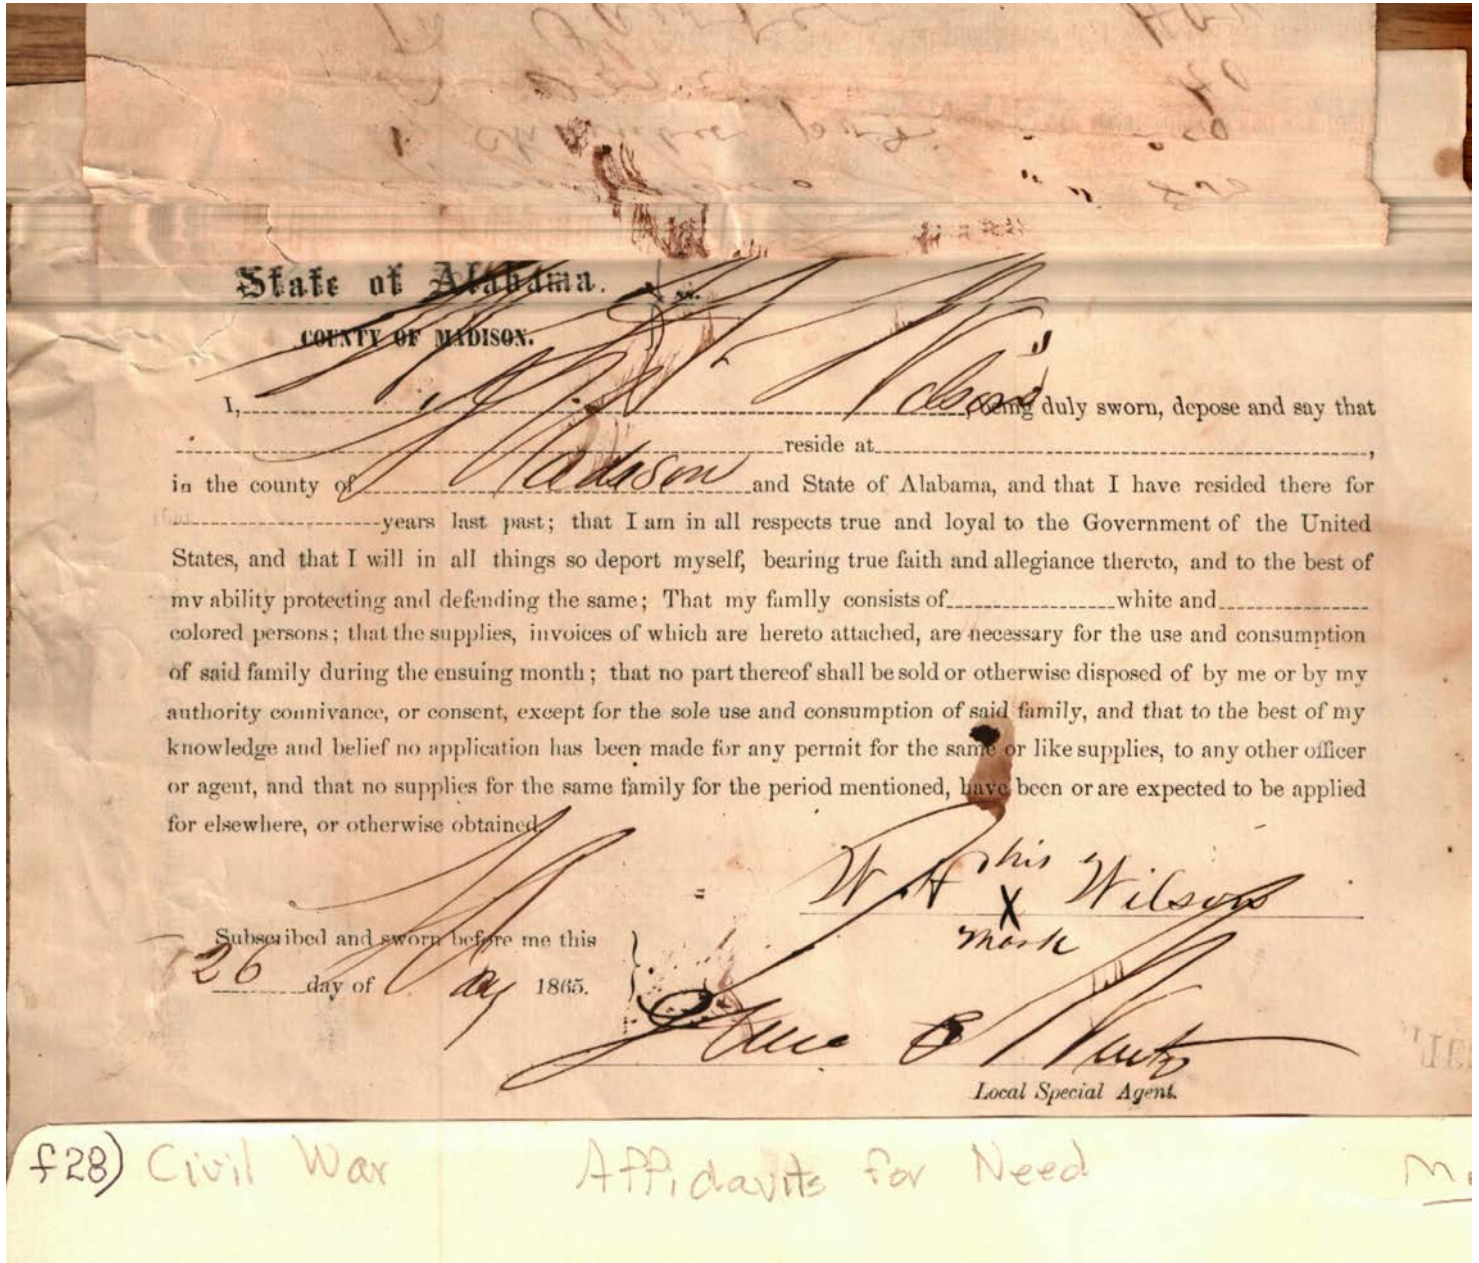 State of Alabama. } ss.
COUNTY OF MADISON.
I, W. H. Wilson, being duly sworn, depose and say that
reside at ,
in the county of Madison and State of Alabama, and that I have resided there for
years last past; that I am in all respects true and loyal to the Government of the United
States, and that I will in all things so deport myself, bearing true faith and allegiance thereto, and to the best of
my ability protecting and defending the same; That my famlly consists of white and
colored persons; that the supplies, invoices of which are hereto attached, are necessary for the use and consumption
of said family during the ensuing month; that no part thereof shall be sold or otherwise disposed of by me or by my
authority connivance, or consent, except for the sole use and consumption of said family, and that to the best of my
knowledge and belief no application has been made for any permit for the same or like supplies, to any other officer
or agent, and that no supplies for the same family for the period mentioned, have been or are expected to be applied
for elsewhere, or otherwise obtained.
W. H. his X mark Wilson
Subscribed and sworn before me this
26 day of May 1865.
Local Special Agent.
f28) Civil War Affidavits for Need